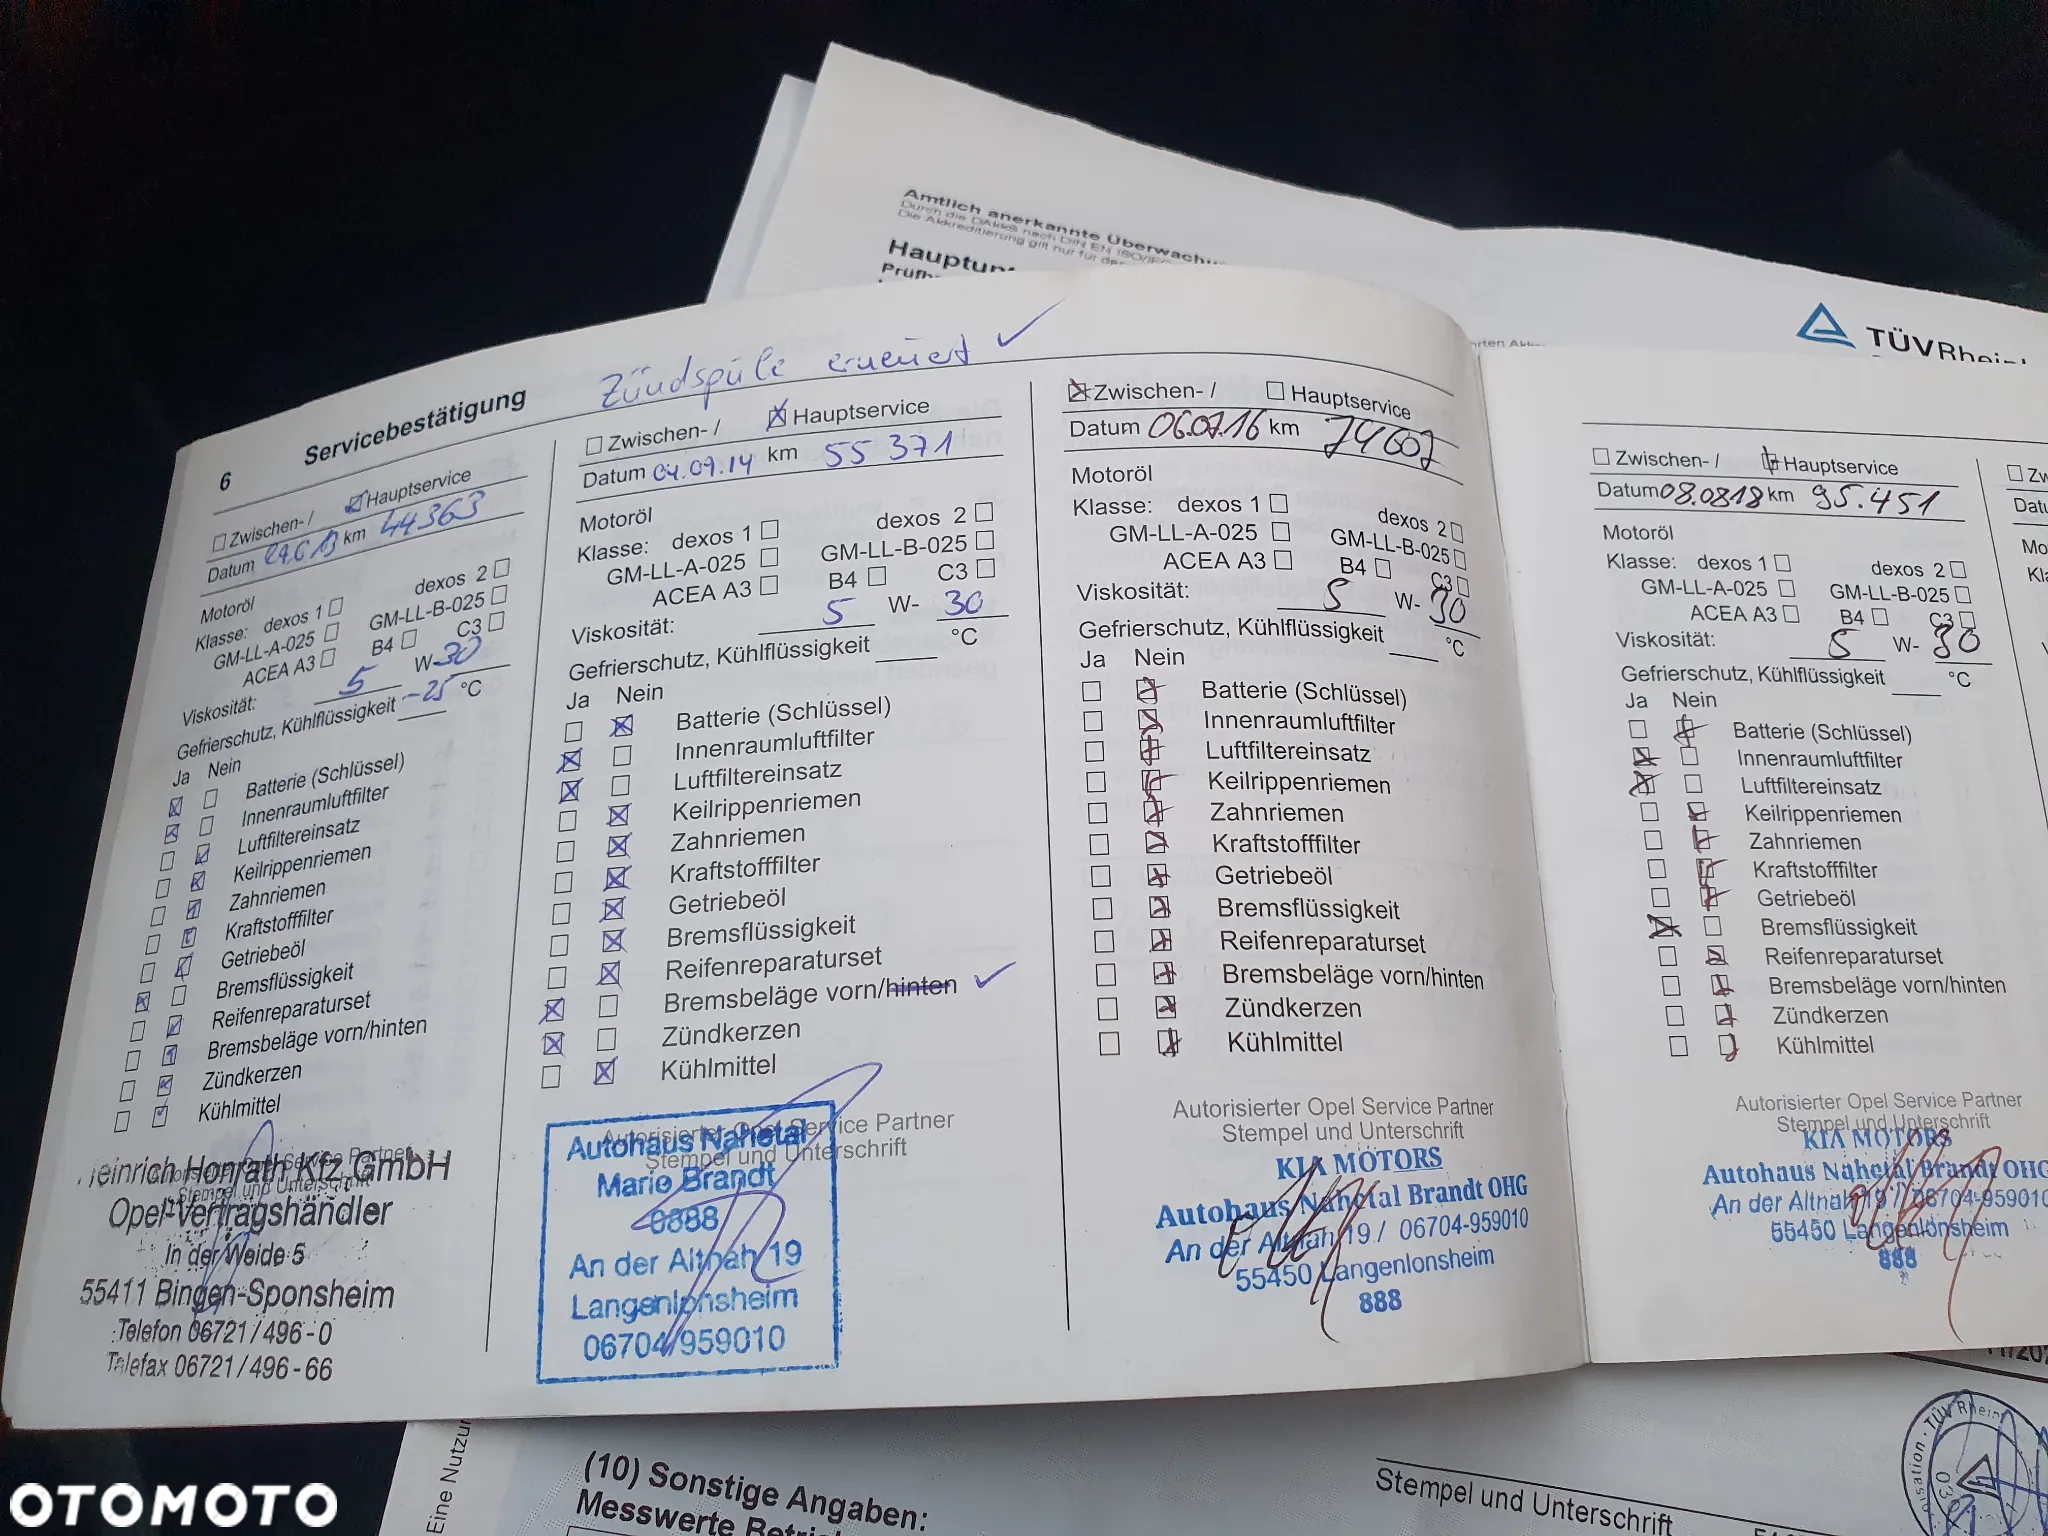 Amtlich anerkannte Überwachu
Durch die DAkkS nach DIN EN ISO/IEC
Die Akkreditierung gilt nur für de
Hauptun
Prüfb
TÜVRhein
6 Servicebestätigung
Zündspule erneuert ✓
Zwischen- / ☒ Hauptservice
Datum km 44363
Motoröl
Klasse: dexos 1 dexos 2
GM-LL-A-025 GM-LL-B-025
ACEA A3 B4 C3
Viskosität: 5 W-30
Gefrierschutz, Kühlflüssigkeit -25 °C
Ja Nein
Batterie (Schlüssel)
Innenraumluftfilter
Luftfiltereinsatz
Keilrippenriemen
Zahnriemen
Kraftstofffilter
Getriebeöl
Bremsflüssigkeit
Reifenreparaturset
Bremsbeläge vorn/hinten
Zündkerzen
Kühlmittel
Autorisierter Opel Service Partner
Stempel und Unterschrift
Heinrich Honrath Kfz GmbH
Opel-Vertragshändler
In der Weide 5
55411 Bingen-Sponsheim
Telefon 06721/496-0
Telefax 06721/496-66
Zwischen- / ☒ Hauptservice
Datum 04.09.14 km 55 371
Motoröl
Klasse: dexos 1 dexos 2
GM-LL-A-025 GM-LL-B-025
ACEA A3 B4 C3
Viskosität: 5 W- 30
Gefrierschutz, Kühlflüssigkeit °C
Ja Nein
Batterie (Schlüssel)
Innenraumluftfilter
Luftfiltereinsatz
Keilrippenriemen
Zahnriemen
Kraftstofffilter
Getriebeöl
Bremsflüssigkeit
Reifenreparaturset
Bremsbeläge vorn/hinten ✓
Zündkerzen
Kühlmittel
Autorisierter Opel Service Partner
Stempel und Unterschrift
Autohaus Nahetal
Mario Brandt
0888
An der Altnah 19
Langenlonsheim
06704/959010
☒ Zwischen- / Hauptservice
Datum 06.07.16 km 74607
Motoröl
Klasse: dexos 1 dexos 2
GM-LL-A-025 GM-LL-B-025
ACEA A3 B4 C3
Viskosität: 5 W- 30
Gefrierschutz, Kühlflüssigkeit °C
Ja Nein
Batterie (Schlüssel)
Innenraumluftfilter
Luftfiltereinsatz
Keilrippenriemen
Zahnriemen
Kraftstofffilter
Getriebeöl
Bremsflüssigkeit
Reifenreparaturset
Bremsbeläge vorn/hinten
Zündkerzen
Kühlmittel
Autorisierter Opel Service Partner
Stempel und Unterschrift
KIA MOTORS
Autohaus Nahetal Brandt OHG
An der Altnah 19 / 06704-959010
55450 Langenlonsheim
888
Zwischen- / ☒ Hauptservice
Datum 08.08.18 km 95.451
Motoröl
Klasse: dexos 1 dexos 2
GM-LL-A-025 GM-LL-B-025
ACEA A3 B4 C3
Viskosität: 5 W- 30
Gefrierschutz, Kühlflüssigkeit °C
Ja Nein
Batterie (Schlüssel)
Innenraumluftfilter
Luftfiltereinsatz
Keilrippenriemen
Zahnriemen
Kraftstofffilter
Getriebeöl
Bremsflüssigkeit
Reifenreparaturset
Bremsbeläge vorn/hinten
Zündkerzen
Kühlmittel
Autorisierter Opel Service Partner
Stempel und Unterschrift
KIA MOTORS
Autohaus Nahetal Brandt OHG
An der Altnah 19 / 06704-959010
55450 Langenlonsheim
888
Zw
Datu
Mo
Kla
Eine Nutzun
(10) Sonstige Angaben:
Messwerte Betri
Stempel und Unterschrift
TÜV Rhein
OTOMOTO